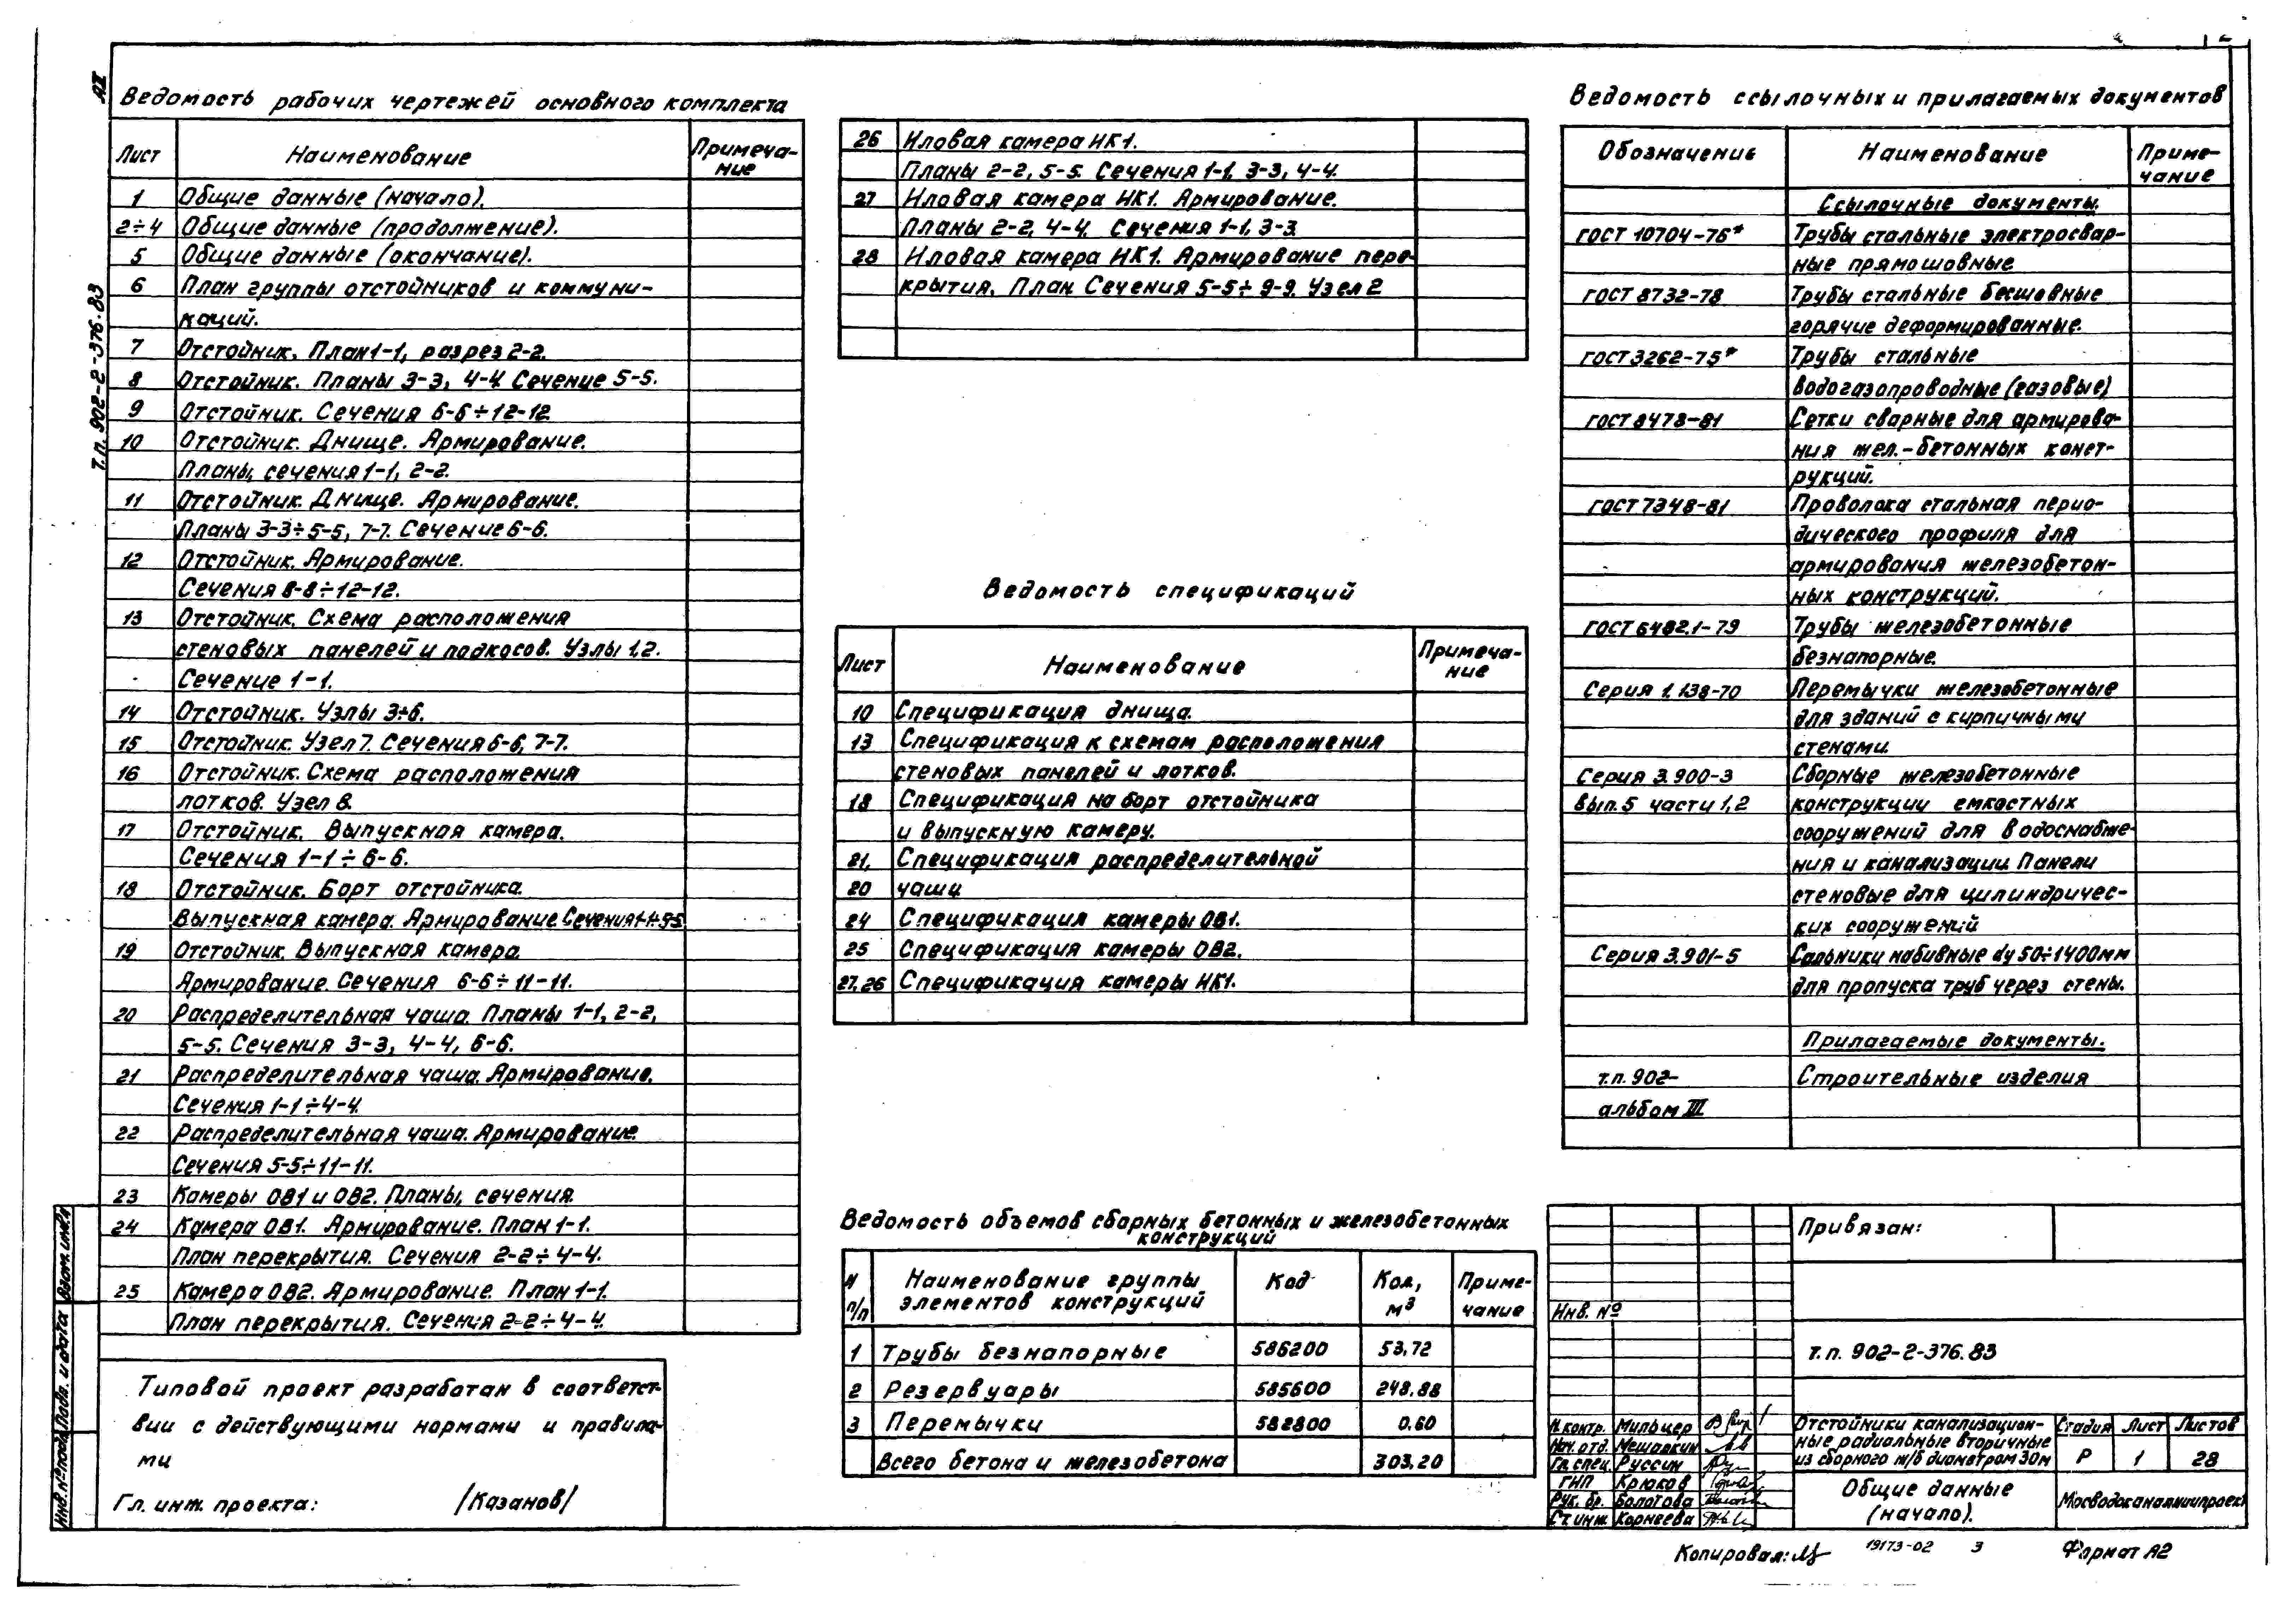 АII
т.п. 902-2-376.83
Ведомость рабочих чертежей основного комплекта
Лист Наименование Примеча-
ние
1 Общие данные (начало).
2÷4 Общие данные (продолжение).
5 Общие данные (окончание).
6 План группы отстойников и коммуни-
каций.
7 Отстойник. План 1-1, разрез 2-2.
8 Отстойник. Планы 3-3, 4-4. Сечение 5-5.
9 Отстойник. Сечения 6-6÷12-12.
10 Отстойник. Днище. Армирование.
Планы, сечения 1-1, 2-2.
11 Отстойник. Днище. Армирование.
Планы 3-3÷5-5, 7-7. Сечение 6-6.
12 Отстойник. Армирование.
Сечения 8-8÷12-12.
13 Отстойник. Схема расположения
стеновых панелей и подкосов. Узлы 1,2.
Сечение 1-1.
14 Отстойник. Узлы 3÷6.
15 Отстойник. Узел 7. Сечения 6-6, 7-7.
16 Отстойник. Схема расположения
лотков. Узел 8.
17 Отстойник. Выпускная камера.
Сечения 1-1÷6-6.
18 Отстойник. Борт отстойника.
Выпускная камера. Армирование. Сечения 1-1÷5-5
19 Отстойник. Выпускная камера.
Армирование. Сечения 6-6÷11-11.
20 Распределительная чаша. Планы 1-1, 2-2,
5-5. Сечения 3-3, 4-4, 6-6.
21 Распределительная чаша. Армирование.
Сечения 1-1÷4-4.
22 Распределительная чаша. Армирование.
Сечения 5-5÷11-11.
23 Камеры ОВ1 и ОВ2. Планы, сечения.
24 Камера ОВ1. Армирование. План 1-1.
План перекрытия. Сечения 2-2÷4-4.
25 Камера ОВ2. Армирование. План 1-1.
План перекрытия. Сечения 2-2÷4-4.
Типовой проект разработан в соответст-
вии с действующими нормами и правила-
ми
Гл. инж. проекта: /Казанов/
26 Иловая камера ИК1.
Планы 2-2, 5-5. Сечения 1-1, 3-3, 4-4.
27 Иловая камера ИК1. Армирование.
Планы 2-2, 4-4. Сечения 1-1, 3-3.
28 Иловая камера ИК1. Армирование пере-
крытия. План. Сечения 5-5÷9-9. Узел 2
Ведомость спецификаций
Лист Наименование Примеча-
ние
10 Спецификация днища.
13 Спецификация к схемам расположения
стеновых панелей и лотков.
18 Спецификация на борт отстойника
и выпускную камеру.
21, Спецификация распределительной
20 чаши.
24 Спецификация камеры ОВ1.
25 Спецификация камеры ОВ2.
27,26 Спецификация камеры ИК1.
Ведомость объемов сборных бетонных и железобетонных
конструкций
N
п/п
Наименование группы
элементов конструкций
Код
Кол,
м³
Приме-
чание
1 Трубы безнапорные 586200 53.72
2 Резервуары 585600 248.88
3 Перемычки 582800 0.60
Всего бетона и железобетона 303.20
Ведомость ссылочных и прилагаемых документов
Обозначение Наименование Приме-
чание
Ссылочные документы.
ГОСТ 10704-76* Трубы стальные электросвар-
ные прямошовные
ГОСТ 8732-78 Трубы стальные бесшовные
горячие деформированные.
ГОСТ 3262-75* Трубы стальные
водогазопроводные (газовые)
ГОСТ 8478-81 Сетки сварные для армирова-
ния жел.-бетонных конст-
рукций.
ГОСТ 7348-81 Проволока стальная перио-
дического профиля для
армирования железобетон-
ных конструкций.
ГОСТ 6482.1-79 Трубы железобетонные
безнапорные.
Серия 1.138-70 Перемычки железобетонные
для зданий с кирпичными
стенами
Серия 3.900-3 Сборные железобетонные
вып. 5 части 1,2 конструкции емкостных
сооружений для водоснабже-
ния и канализации. Панели
стеновые для цилиндричес-
ких сооружений
Серия 3.901-5 Сальники набивные dу 50÷1400мм
для пропуска труб через стены.
Прилагаемые документы.
т.п. 902- Строительные изделия
альбом III
Привязан:
Инв. №
т.п. 902-2-376.83
Н.контр. Мильцер
Нач. отд. Мешалкин
Гл. спец. Руссин
ГИП Крюков
Рук. бр. Болотова
Ст.инж. Корнеева
Отстойники канализацион-
ные радиальные вторичные
из сборного ж/б диаметром 30м
Стадия Лист Листов
Р 1 28
Общие данные
(начало).
Мосводоканалниипроект
Инв. № подл. Подп. и дата Взам. инв. №
Копировал: 19173-02 3 Формат А2